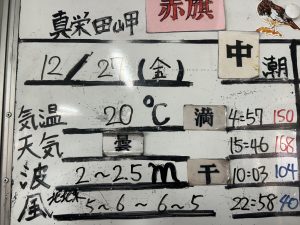 真栄田岬 赤旗
12/27(金) 中潮
気温 20℃ 満 4:57 150
天気 曇 15:46 168
波 2~2.5m 干 10:03 104
風 北北東 5~6~6~5 22:58 40